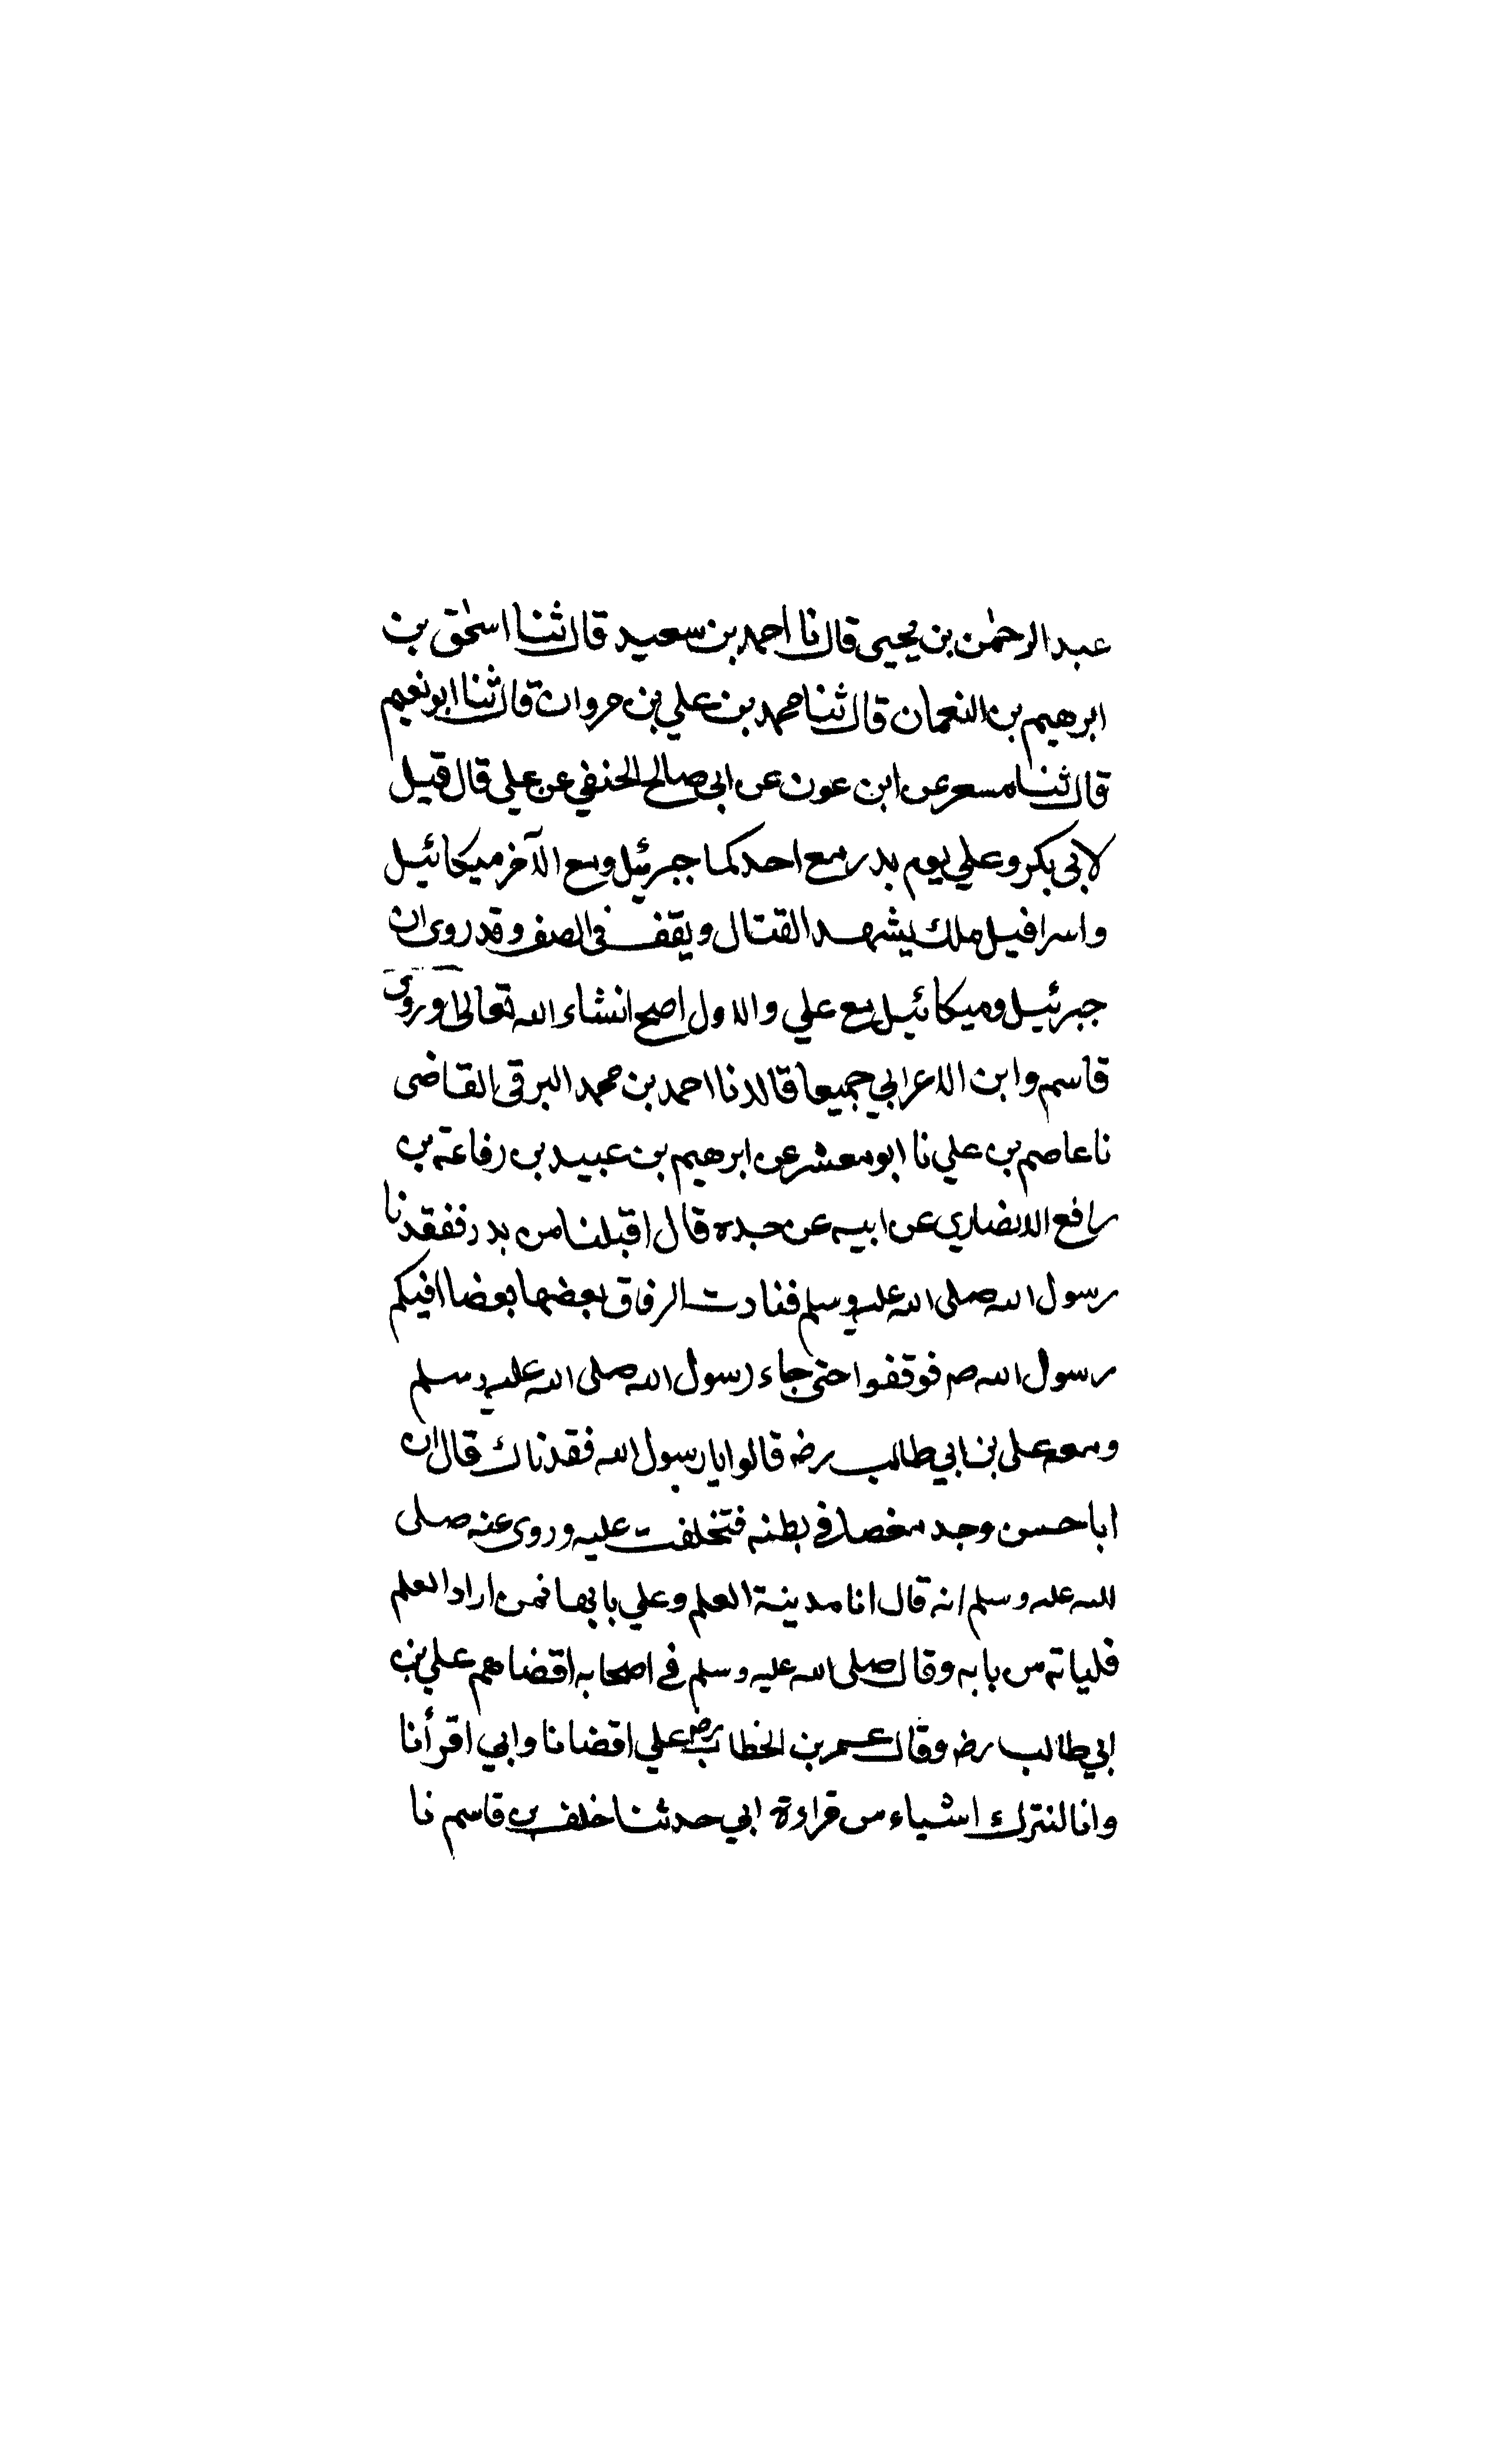 عبدالرحمٰن بن يحيى قال نا احمد بن سعيد قال ثنا اسحٰق بن
ابرهيم بن النعمان قال ثنا محمد بن علي بن مروان قال ثنا ابو نعيم
قال ثنا مسعر عن ابن عون عن ابى صالح الحنفي عن علي قال قيل
لابى بكر وعلي يوم بدر مع احدكما جبرئيل ومع الآخر ميكائيل
واسرافيل ملك يشهد القتال ويقف فى الصف وقد روى ان
جبرئيل وميكائيل مع علي والاول اصح انشاء الله تعالى وروى
قاسم وابن الاعرابي جميعا قالا نا احمد بن محمد البرقى القاضى
نا عاصم بن علي نا ابو معشر عن ابرهيم بن عبيد بن رفاعة بن
رافع الانصاري عن ابيه عن جده قال اقبلنا من بدر ففقدنا
رسول الله صلى الله عليه وسلم فنادت الرفاق بعضها بعضا افيكم
رسول الله صم فوقفوا حتى جاء رسول الله صلى الله عليه وسلم
ومعه على بن ابي طالب رضه قالوا يا رسول الله فقدناك قال ان
ابا حسن وجد مغصا في بطنه فتخلفت عليه وروى عنه صلى
الله عليه وسلم انه قال انا مدينة العلم وعلي بابها فمن اراد العلم
فلياته من بابه وقال صلى الله عليه وسلم في اصحابه اقضاهم علي بن
ابي طالب رضه وقال عمر بن الخطاب رضه علي اقضانا وابي اقرأنا
وانا لنترك اشياء من قراءة ابي حدثنا خلف بن قاسم نا